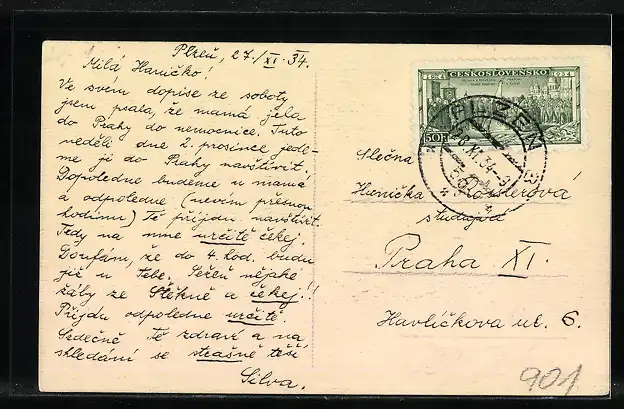 Plzeň, 27./XI. 34.
Milá Haničko!
Ve svém dopise ze soboty
jsem psala, že mamá jela
do Prahy do nemocnice. Tuto
neděli dne 2. prosince jede-
me ji do Prahy navštívit.
Dopoledne budeme u mamá
a odpoledne (nevím přesnou
hodinu) Tě přijdu navštívit.
Tedy na mne určitě čekej.
Doufám, že do 4. hod. budu
již u tebe. Seřeň nějaké
žáby ze Stěkně a čekej!!
Přijdu odpoledne určitě.
Srdečně Tě zdraví a na
shledání se strašně těší
Silva.
1914 1934
ČESKOSLOVENSKO
50 h
PLZEŇ
28. XI. 34 - 9
Slečna
Hanička
studující
Praha XI.
Havlíčkova ul. 6.
901